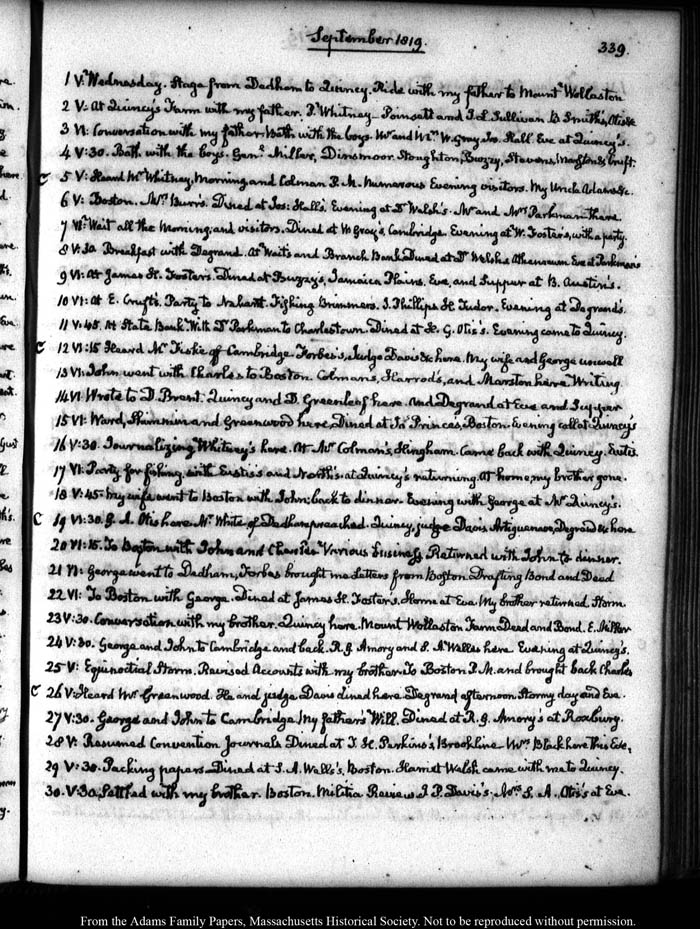 September 1819.
339.
1 V: Wednesday. Stage from Dedham to Quincy. Ride with my father to Mount Wollaston
2 V: At Quincy's Farm with my father. P. Whitney Poinsett and J. L. Sullivan B Smith, Otis &c
3 VI: Conversation with my father. Bath with the boys. Mr and Mrs W. Gray Jos. Hall. Eve at Quincy's.
4 V:30. Bath with the boys. Genl Miller, Dinsmoor, Stoughton, Bussey, Stevens, Marston & Cruft.
C 5 V: Heard Mr Whitney, Morning and Colman P.M. Numerous Evening visitors. My Uncle Adams &c.
6 V: Boston. Mrs Burr's. Dined at Jos: Hall's. Evening at Dr Welsh's. Mr and Mrs Parkman there.
7 VI: Wait all the Morning, and visitors. Dined at W Gray's, Cambridge. Evening at W. Foster's, with a party.
8 V:30 Breakfast with Degrand. At Wait's and Branch Bank. Dined at Dr Welsh's Athenaeum Eve at Parkman's
9 VI: At James H. Foster's. Dined at Bussey's, Jamaica Plains. Eve, and Supper at B. Austin's.
10 VI: At E. Cruft's. Party to Nahant. Fishing Brimmers. J. Phillips H Tudor. Evening at Degrand's.
11 V:45. At State Bank. With Dr Parkman to Charlestown. Dined at H. G. Otis's. Evening came to Quincy.
C 12 VI:15 Heard Mr Fiske of Cambridge. Forbes's, Judge Davis &c here. My wife and George unwell
13 VI: John went with Charles to Boston. Colmans, Harrod's, and Marston here. Writing.
14 VI Wrote to D. Brent. Quincy and D. Greenleaf here. and Degrand at Eve and Supper
15 VI: Ward, Skimmer and Greenwood here. Dined at Ja's Princes, Boston. Evening call at Quincy's
16 V:30. Journalizing Whitney's here. At Mr Colman's, Hingham. Came back with Quincy.
17 VI: Party for fishing, with Eustis's and North's at Quincy's returning. At home my brother gone.
18 V:45. My wife went to Boston with John; back to dinner. Evening with George at Mr Quincy's.
C 19 VI:30. G. A. Otis here. Mr White of Dedham preached. Quincy, Judge Davis, Degrand &c here
20 VI:15. To Boston with John and Charles Various business Returned with John to dinner.
21 VI: George went to Dedham, Forbes brought me Letters from Boston Drafting Bond and Deed
22 VI: To Boston with George. Dined at James H. Foster's. Home at Eve. My brother returned. Storm.
23 V:30. Conversation with my brother. Quincy here. Mount Wollaston Farm Deed and Bond. E. Miller
24 V:30. George and John to Cambridge and back. R. G. Amory and S. A. Welles here Evening at Quincy's.
25 V: Equinoctial Storm. Revised Accounts with my brother. To Boston P.M. and brought back Charles
C 26 V: Heard Mr Greenwood. He and Judge Davis dined here Degrand afternoon Stormy day and Eve.
27 V:30. George and John to Cambridge My father's Will. Dined at R. G. Amory's at Roxbury.
28 V: Resumed Convention Journals Dined at T. H. Perkins's, Brookline Mrs Black here this Eve.
29 V:30. Packing papers Dined at S. A. Wells's, Boston. Harriet Welsh came with me to Quincy.
30. V:30 Settled with my brother. Boston. Militia Review J. P. Davis's. Mrs S. A. Otis's at Eve.
From the Adams Family Papers, Massachusetts Historical Society. Not to be reproduced without permission.